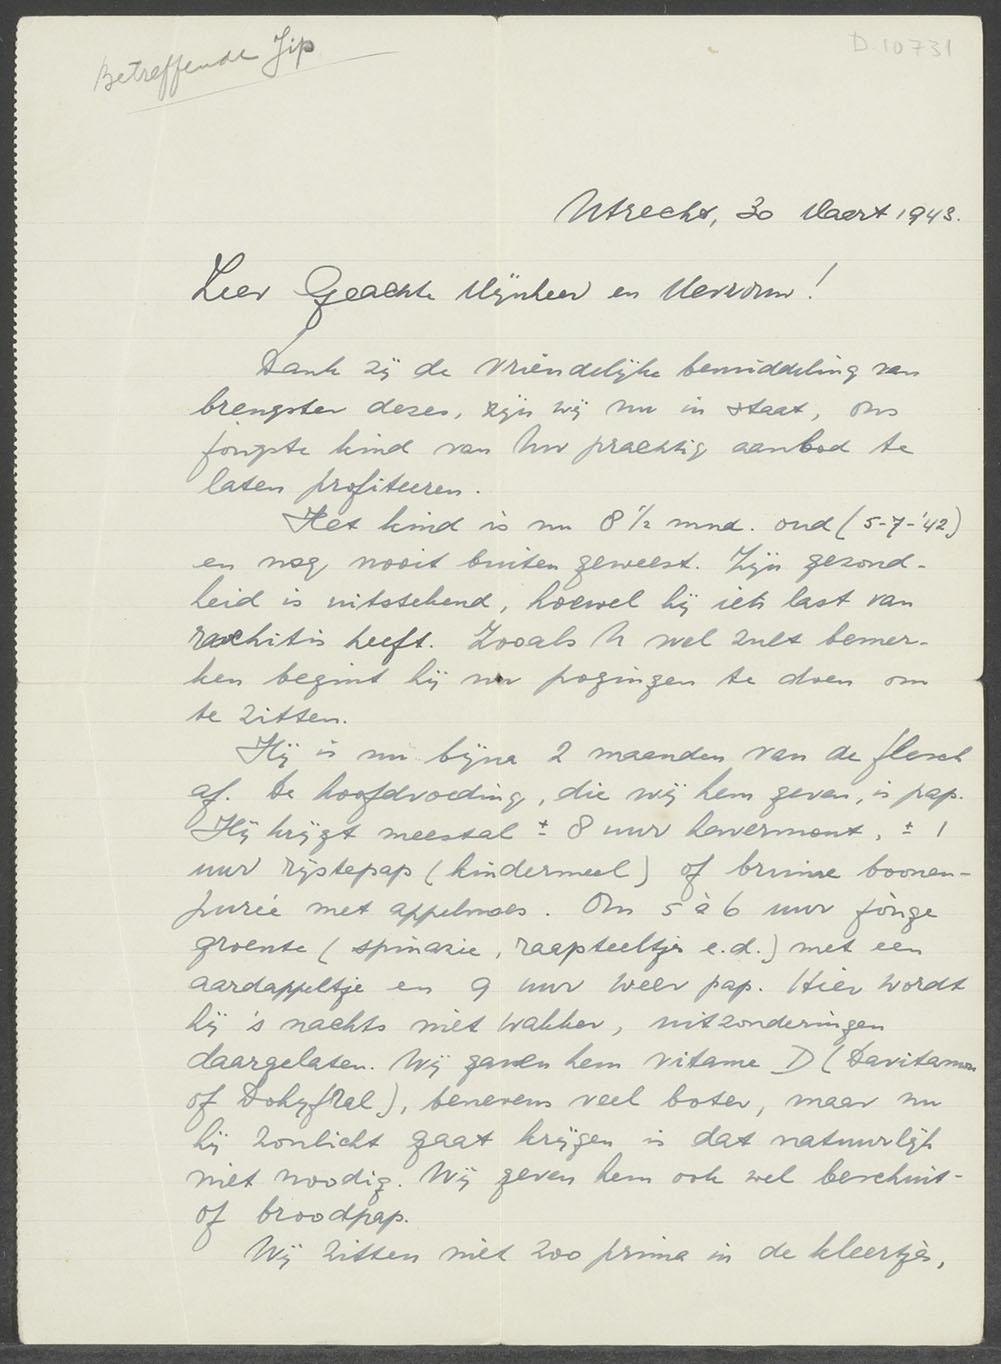 Betreffende Jip
D.10731
Utrecht, 30 Maart 1943.
Zeer Geachte Mijnheer en Mevrouw!
Dank zij de vriendelijke bemiddeling van
brengster dezes, zijn wij nu in staat, ons
jongste kind van Uw prachtig aanbod te
laten profiteeren.
Het kind is nu 8 1/2 mnd. oud (5-7-'42)
en nog nooit buiten geweest. Zijn gezond-
heid is uitstekend, hoewel hij iets last van
rachitis heeft. Zooals U wel zult bemer-
ken begint hij nu pogingen te doen om
te zitten.
Hij is nu bijna 2 maanden van de flesch
af. De hoofdvoeding, die wij hem geven, is pap.
Hij krijgt meestal ± 8 uur havermout, ± 1
uur rijstepap (kindermeel) of bruine boonen-
purée met appelmoes. Om 5 à 6 uur jonge
groente (spinazie, raapsteeltjes e.d.) met een
aardappeltje en 9 uur weer pap. Hier wordt
hij 's nachts niet wakker, uitzonderingen
daargelaten. Wij gaven hem vitame D (Davitamon
of Dohyfral), benevens veel boter, maar nu
hij zonlicht gaat krijgen is dat natuurlijk
niet noodig. Wij geven hem ook wel beschuit-
of broodpap.
Wij zitten niet zoo prima in de kleertjes,